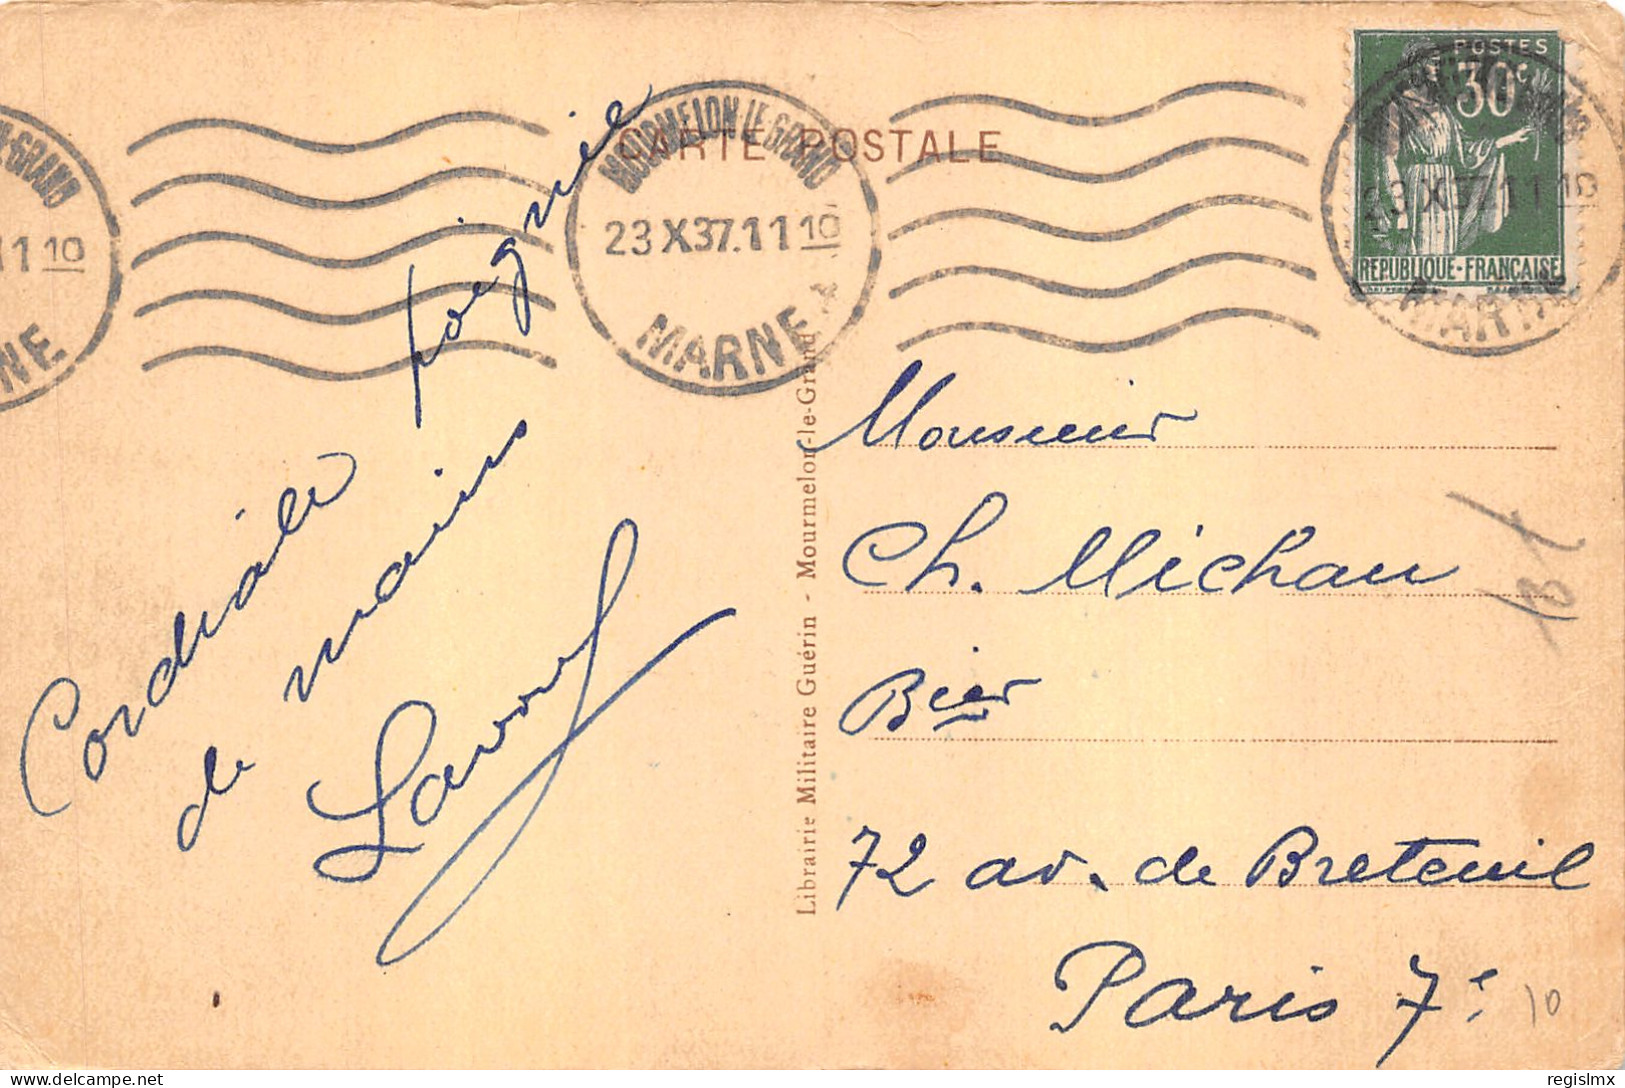 CARTE POSTALE
POSTES
30c
RÉPUBLIQUE-FRANÇAISE
MOURMELON LE GRAND
23 X 37. 11 10
MARNE
LE-GRAND
11 10
NE
23 X 37. 11 10
MARNE
Cordiale poignée
de mains
Librairie Militaire Guérin - Mourmelon-le-Grand
Monsieur
Ch. Michau
Bier
72 av. de Breteuil
Paris 7e
10
regislmx